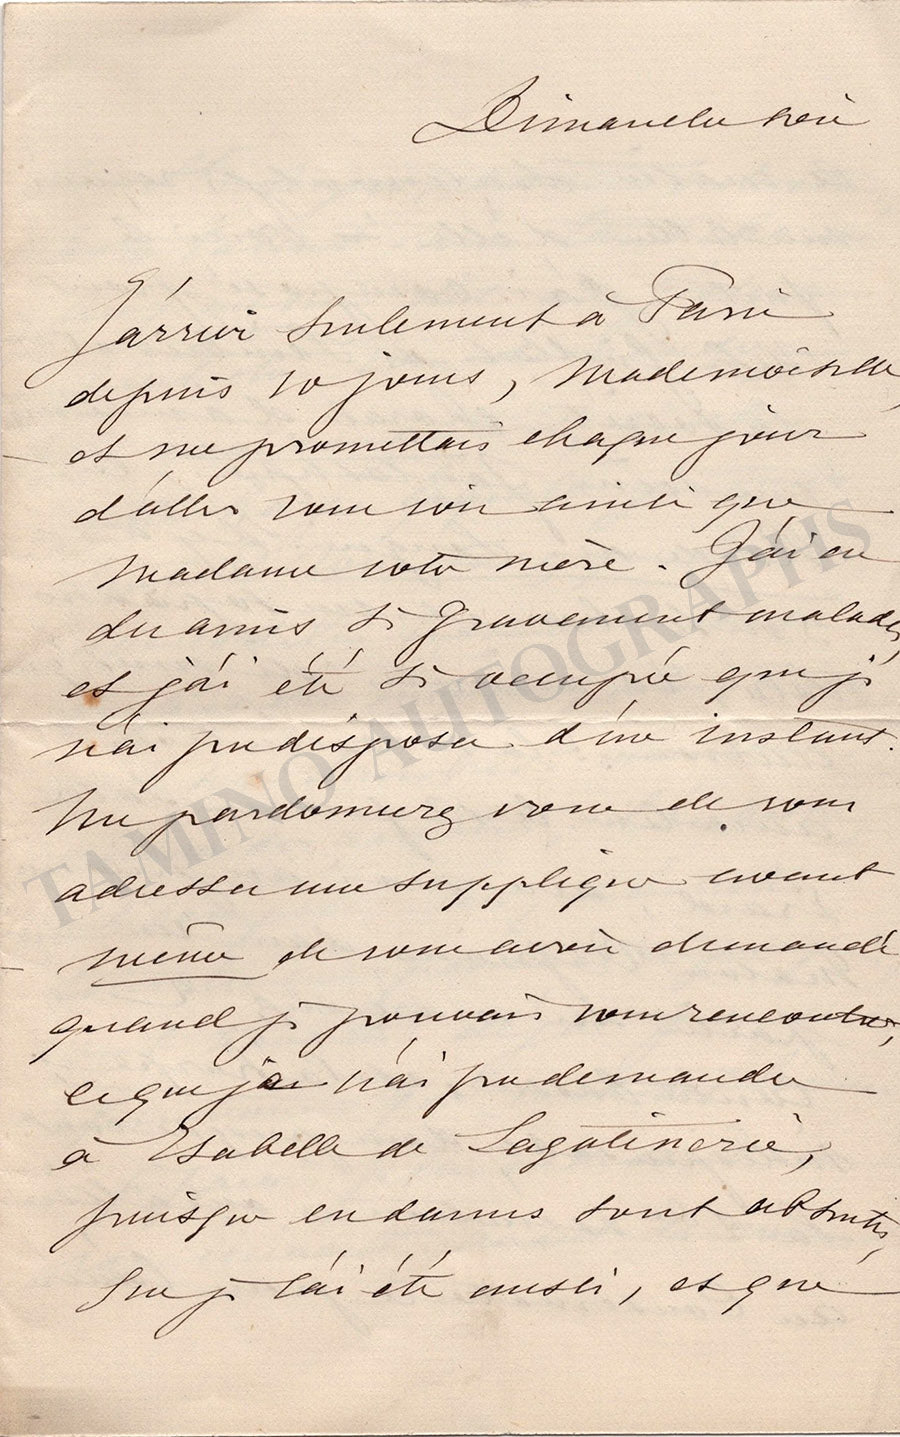 Dimanche soir
J'arrive seulement à Paris
depuis 10 jours, Mademoiselle,
et me promettais chaque jour
d'aller vous voir ainsi que
Madame votre mère. J'ai eu
des amis si gravement malades,
et j'ai été si occupée que je
n'ai pu disposer d'un instant.
Me pardonnerez vous de vous
adresser une supplique avant
même de vous avoir demandé
quand je pouvais vous rencontrer,
ce que je n'ai pu demander
à Isabelle de Lagatinerie,
puisque ces dames sont absentes,
que je l'ai été aussi, et que
TAMINO AUTOGRAPHS